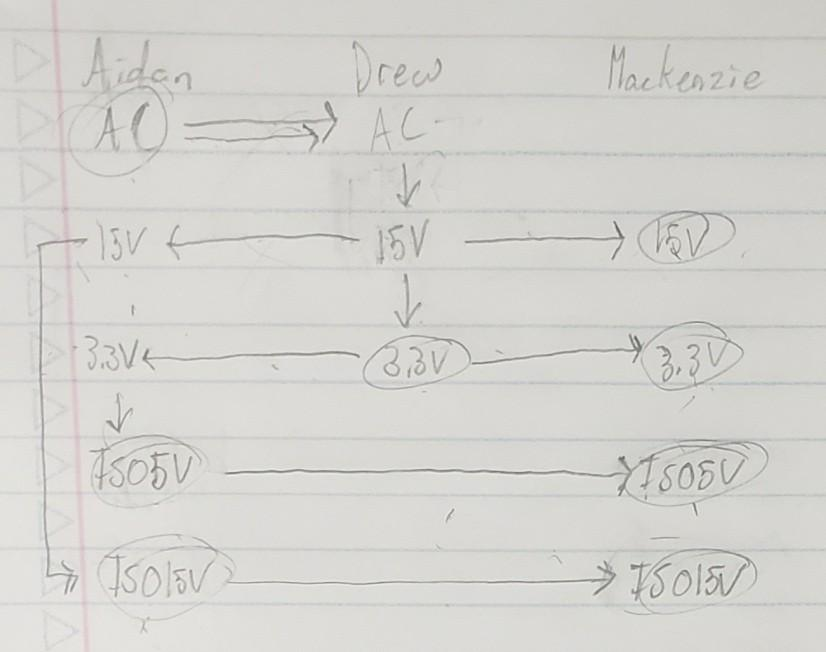 Aidan Drew Mackenzie
AC AC
15V 15V 15V
3.3V 3.3V 3.3V
ISO5V ISO5V
ISO15V ISO15V